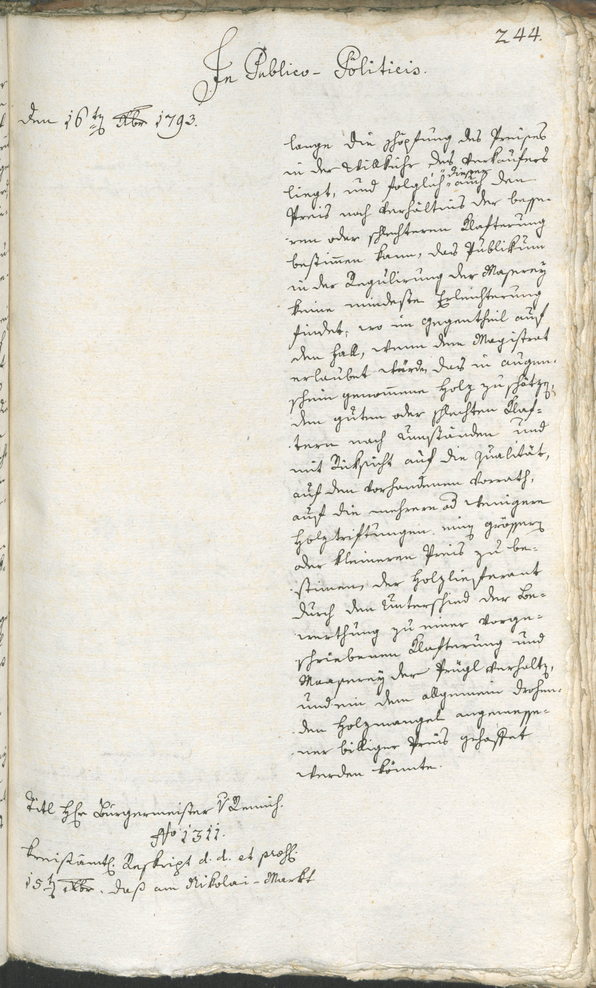 244.
In Publico-Politicis.
Den 16ten Xbr 1793.
lange die Schöpfung des Preises
in der Willkühr des Verkaufers
liegt, und folglich auch den
diesen
Preis nach Verhältnis der besse-
ren oder schlechteren Klafterung
bestimen kann, das Publikum
in der Regulirung der Maserey
keine mindeste Erleuchterung
findet; wo im Gegentheil auf
den Fall, wenn dem Magistrat
erlaubet würde, das in Augen-
schein genommene Holz zu schätzen,
den guten oder schlechten Klaf-
tern nach Umständen und
mit Rücksicht auf die Qualität,
auf den vorhandenen Vorrath,
auf die mehrere od wenigere
Holztriftungen einen grössern
oder kleineren Preis zu be-
stimen, der Holzlieferant
durch den Unterschied der Be-
werthung zu einer vorge-
schriebenen Klafterung und
Maaserey der Prügl verhalten,
und ein dem allgemein drohen-
den Holzmangel angemesse-
ner billiger Preis geschaffet
werden könnte.
Titl Hr Bürgermeister v Remich.
No 1311.
Kreisämtl. Reskript d. d. et präs.
15ten Xbr. daß am Nikolai-Markt